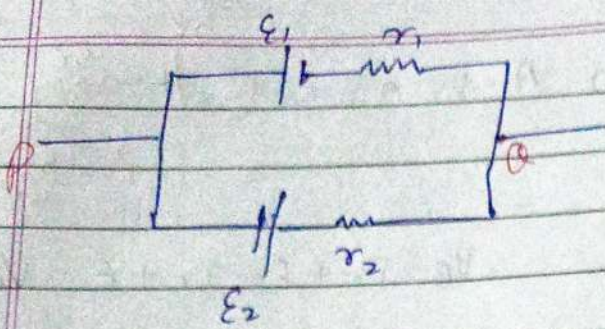 ε₁ r₁
P
Q
r₂
ε₂